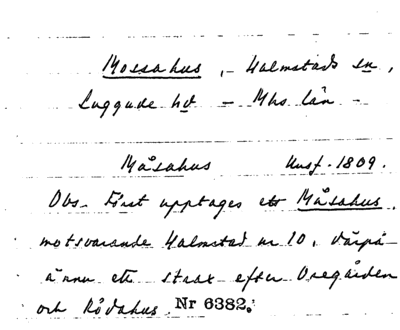 Mossahus, - Halmstads sn,
Luggude hd - Mhs län -
Måsahus Husf. 1809.
Obs. Först upptages ett Måsahus,
motsvarande Halmstad nr 10, därpå
ännu ett strax efter Oregården
och Rödahus. Nr 6382.